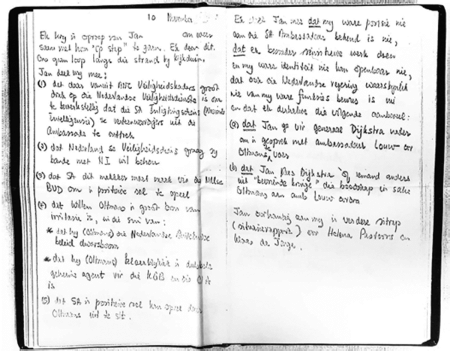 10 November
Ek kry 'n oproep van Jan om weer
saam met hom "op stap" te gaan. Ek doen dit.
Ons gaan loop langs die strand by Kijkduin.
Jan deel my mee:
(1) dat daar vanuit RSA Veiligheidskaders groot
druk op die Nederlandse Veiligheidsdienste is om
te bewerkstellig dat die SA Inligtingsdiens (Nasionale
Intelligensie) se verteenwoordiger uit die
Ambassade te onttrek
(2) dat Nederland se Veiligheidsdiens graag sy
bande met NI wil behou
(3) dat SA dit makliker moet maak vir die
BVD om 'n positiewe rol te speel
(4) dat Willem Oltmans 'n groot bron van
irritasie is, in die sin van:
* dat hy (Oltmans) die Nederlandse
beleid dwarsboom
* dat hy (Oltmans) klaarblyklik 'n dubbele
geheime agent vir die KGB en die CIA
is
(5) dat SA 'n positiewe rol kan speel deur
Oltmans uit te sit.
Ek stel Jan mee dat my ware posisie nie
aan die SA Ambassadeurs bekend is nie,
dat ek besonder sensitiewe werk doen
en my ware identiteit nie kan openbaar nie,
dat ook die Nederlandse regering waarskynlik
nie van my ware funksies bewus is nie
en dat ek derhalwe die volgende aanbeveel:
(a) dat Jan se vir generaal Dijkstra vader
om 'n gesprek met ambassadeur Louw oor
Oltmans te voer
(b) dat Jan Pier Dijkstra of iemand anders
uit "bevriende kringe" die boodskap in sake
Oltmans aan amb Louw oordra
Jan oorhandig aan my 'n verdere sitrep
(situasierapport) oor Helena Pastoors en
Klaas de Jonge.